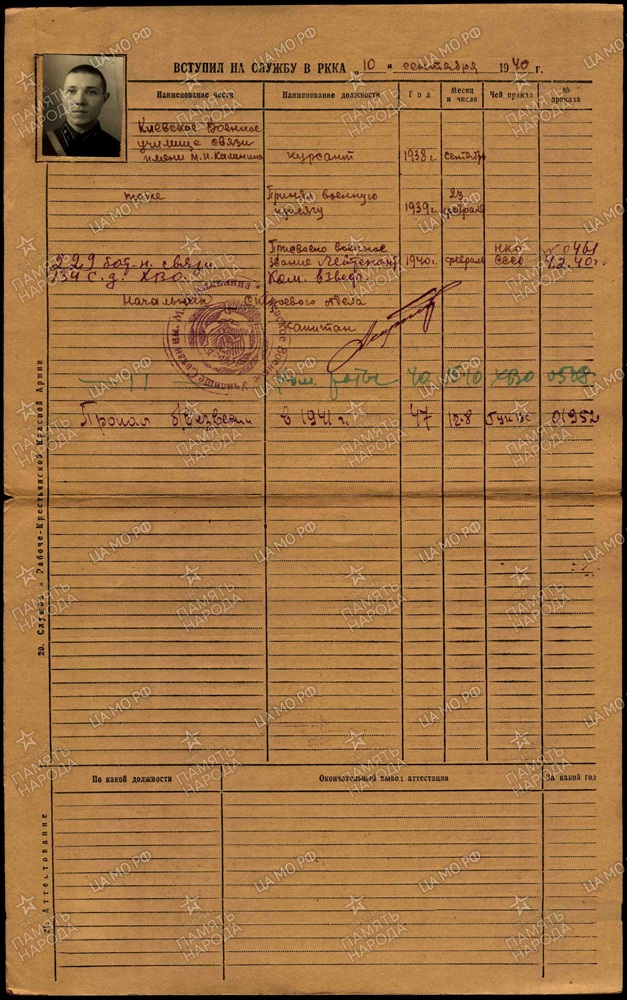 ВСТУПИЛ НА СЛУЖБУ В РККА „10“ сентября 1940 г.
Наименование части Наименование должности Год Месяц и число Чей приказ № приказа
Киевское Военное
училище связи
имени М.И. Калинина курсант 1938 г. сентябрь
тоже Принял военную присягу 1939 г. 23 февраля
229 бат-н. связи
134 с.д. ХВО.
Присвоено военное
звание Лейтенант
Ком. взвода
1940 г. февраль НКО СССР № 0461
4.2.40 г.
Начальник Строевого отдела
Капитан
— 11 — Ком. роты 40 15/10 ХВО 0508
Пропал б/извести в 1941 г. 47 12.8 01952
20. Служба в Рабоче-Крестьянской Красной Армии
По какой должности Окончательный вывод аттестации За какой год
21. Аттестование
ПАМЯТЬ НАРОДА
ЦАМО.РФ